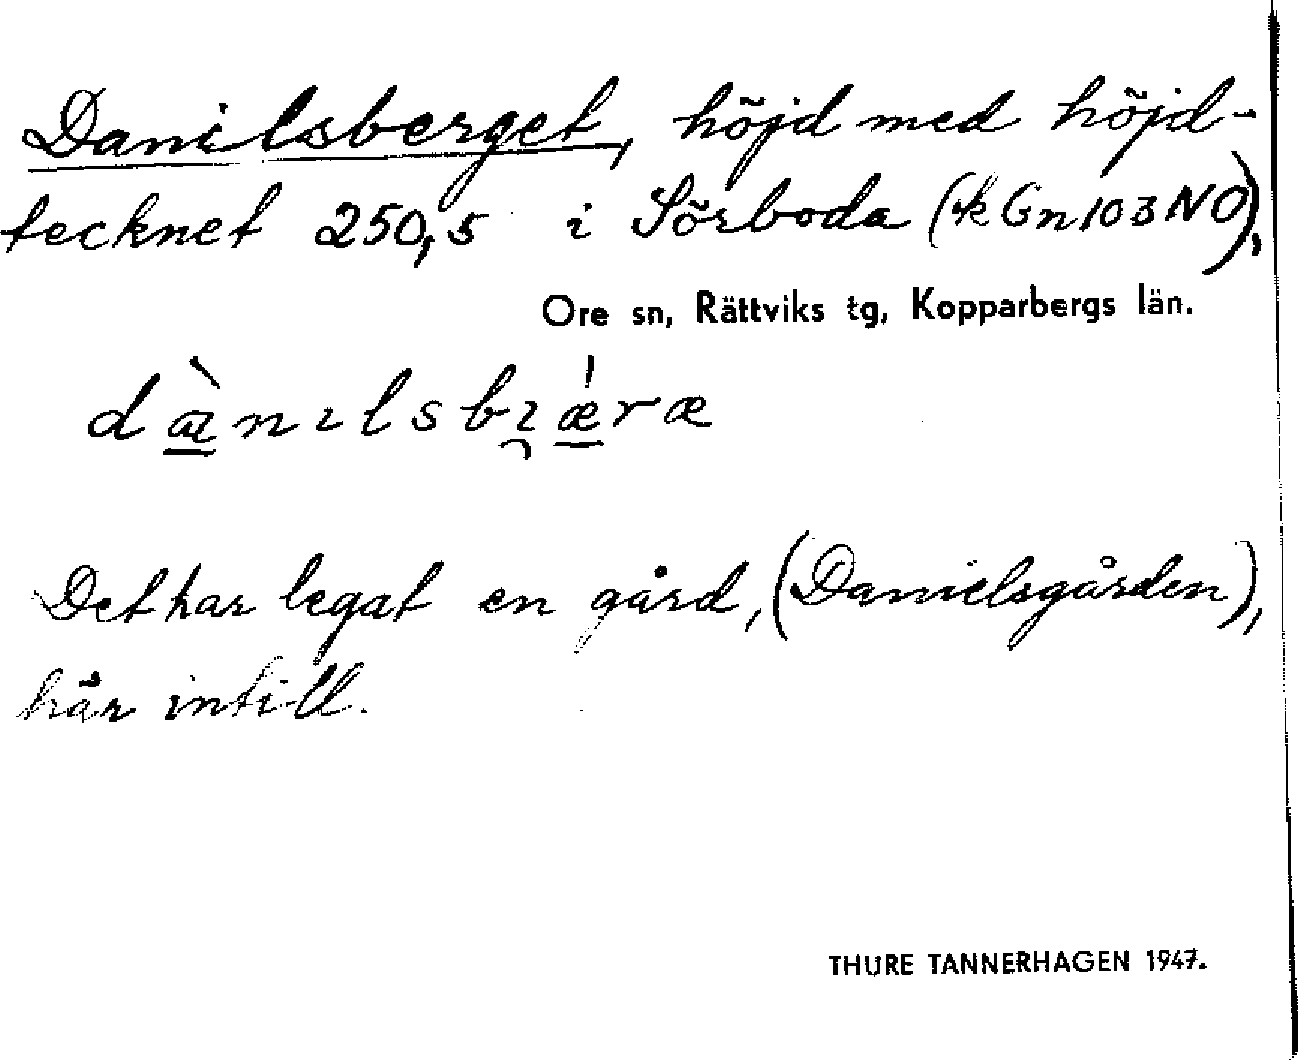 Danilsberget, höjd med höjd-
tecknet 250,5 i Sörboda (kGn103NO),
Ore sn, Rättviks tg, Kopparbergs län.
dànɪlsbɪ̯ǽræ
Det har legat en gård, (Danielsgården),
här intill.
THURE TANNERHAGEN 1947.